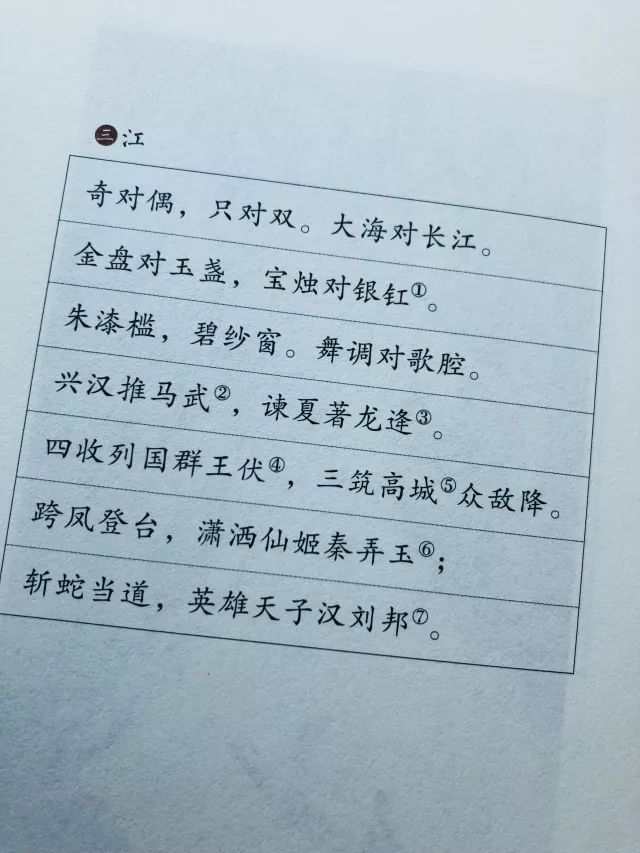 三江
奇对偶，只对双。大海对长江。
金盘对玉盏，宝烛对银钉①。
朱漆槛，碧纱窗。舞调对歌腔。
兴汉推马武②，谏夏著龙逄③。
四收列国群王伏④，三筑高城⑤众敌降。
跨凤登台，潇洒仙姬秦弄玉⑥；
斩蛇当道，英雄天子汉刘邦⑦。